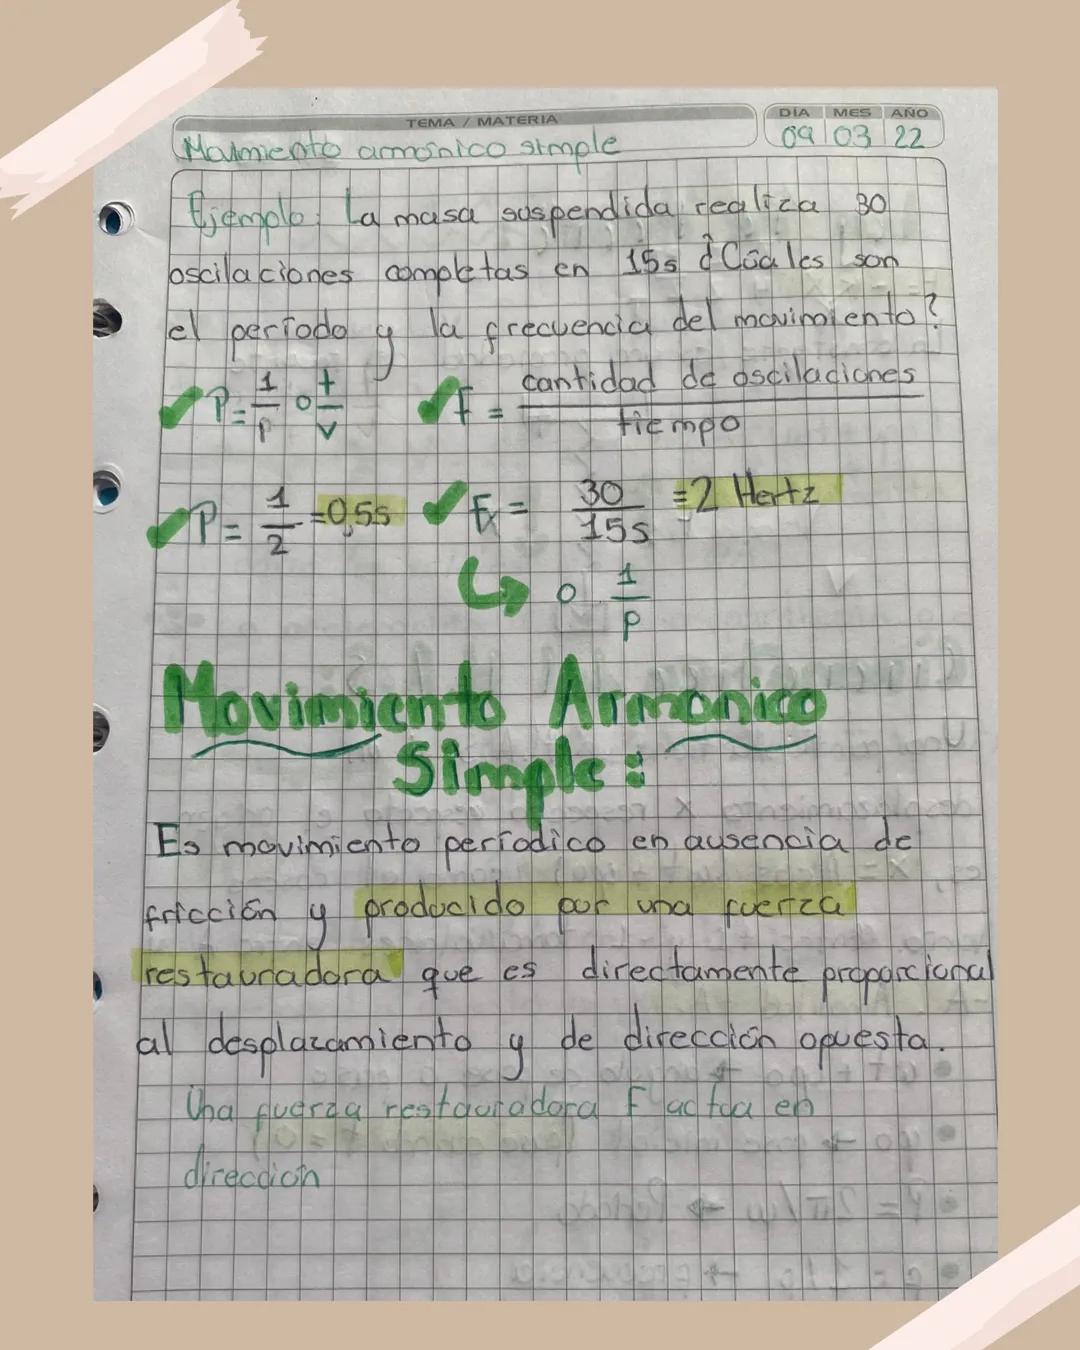 TEMA / MATERIA
DIA MES AÑO
Movimiento armónico simple
09 03 22
Ejemplo: La masa suspendida realiza 30
oscilaciones completas en 15s ¿Cúales son
el período y la frecuencia del movimiento?
P= 1/P o t/v
F = cantidad de oscilaciones / tiempo
P= 1/2 =0,5s
Fx = 30/15s =2 Hertz
o 1/P
Movimiento Armonico
Simple:
Es movimiento períodico en ausencia de
fricción y producido por una fuerza
restauradora que es directamente proporcional
al desplazamiento y de dirección opuesta.
Una fuerza restauradora F actúa en
dirección